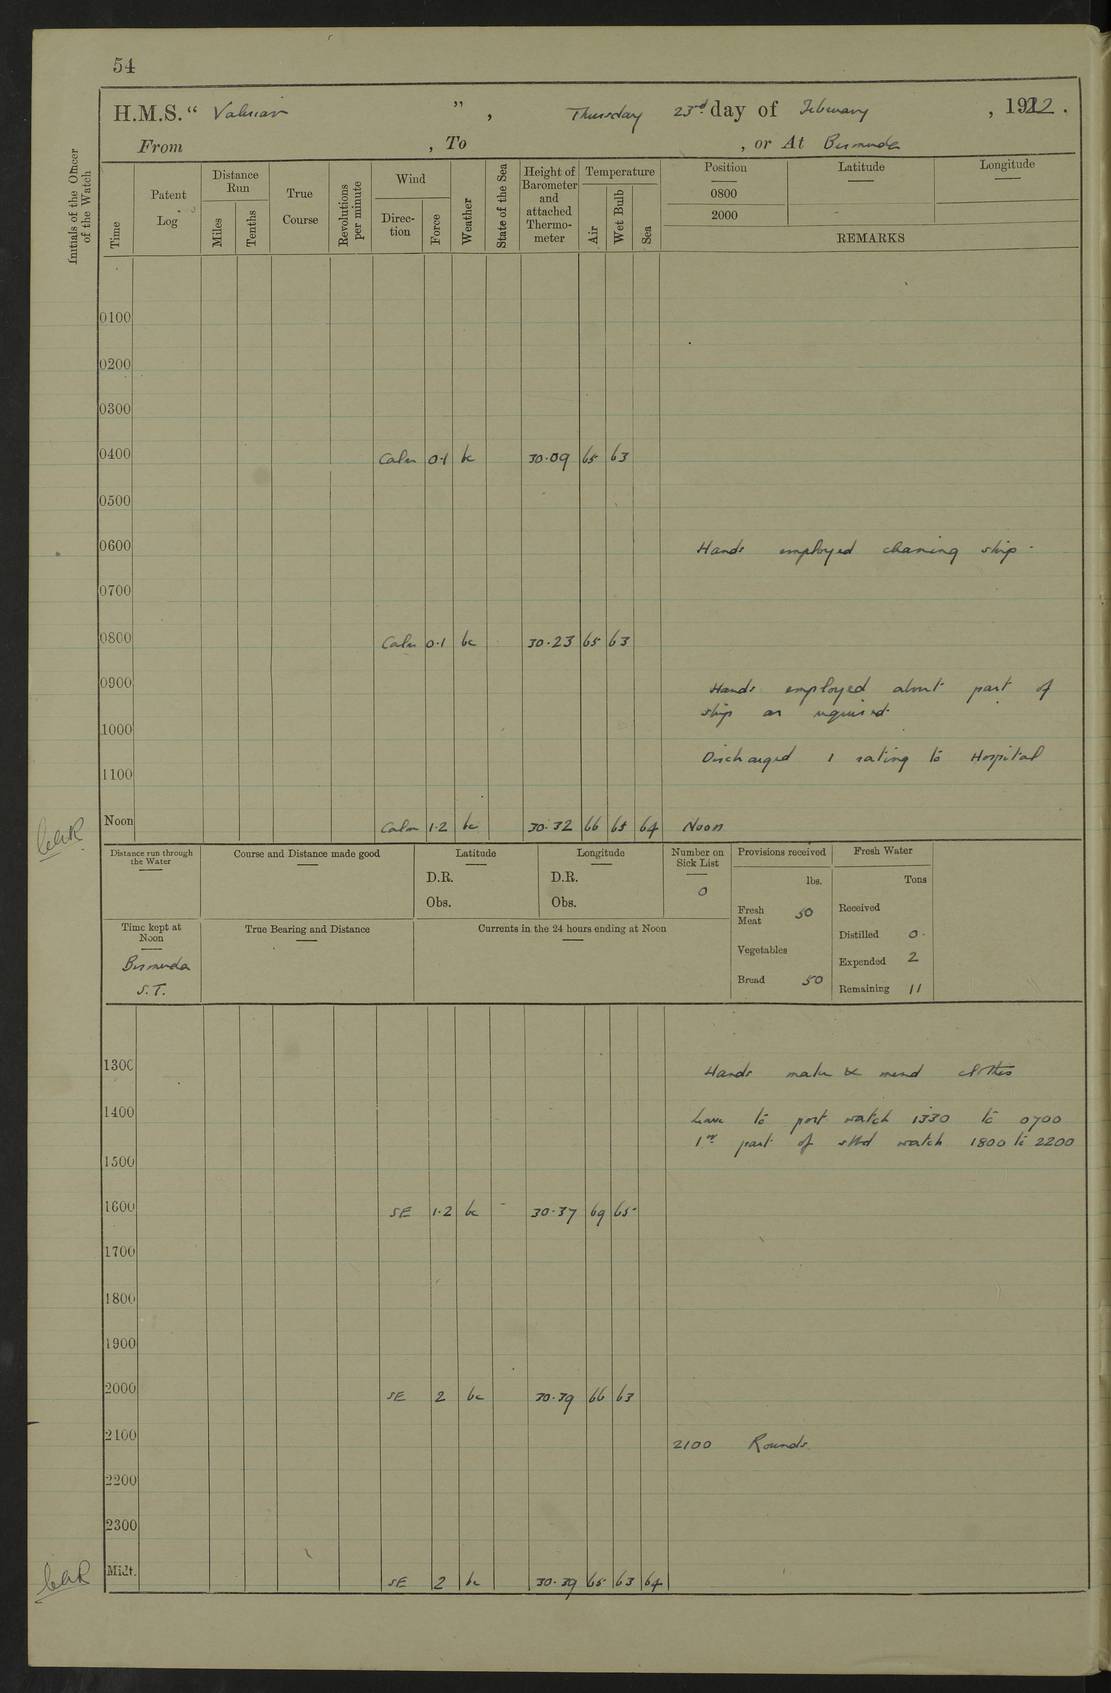 54
H.M.S. “ Valerian ” , Thursday 23rd day of February , 1922 .
From , To , or At Bermuda
Initials of the Officer of the Watch
Time
Patent Log
Distance Run
Miles
Tenths
True Course
Revolutions per minute
Wind
Direc-tion
Force
Weather
State of the Sea
Height of Barometer and attached Thermo-meter
Temperature
Air
Wet Bulb
Sea
Position Latitude Longitude
0800
2000
REMARKS
0100
0200
0300
0400 Calm 0.1 bc 30.09 65 63
0500
0600 Hands employed cleaning ship.
0700
0800 Calm 0.1 bc 30.23 65 63
0900 Hands employed about part of
ship as required.
1000
Discharged 1 rating to Hospital
1100
Noon Calm 1.2 bc 30.32 66 65 64 Noon
Distance run through the Water
Course and Distance made good
Latitude
D.R.
Obs.
Longitude
D.R.
Obs.
Number on Sick List
0
Provisions received
lbs.
Fresh Meat 50
Vegetables
Bread 50
Fresh Water
Tons
Received
Distilled 0.
Expended 2
Remaining 11
Time kept at Noon
Bermuda
S.T.
True Bearing and Distance
Currents in the 24 hours ending at Noon
1300 Hands make & mend clothes
1400 Leave to port watch 1330 to 0700
1st part of stbd watch 1800 to 2200
1500
1600 SE 1.2 bc 30.37 69 65
1700
1800
1900
2000 SE 2 bc 30.39 66 63
2100 2100 Rounds.
2200
2300
Midt. SE 2 bc 30.39 65 63 64